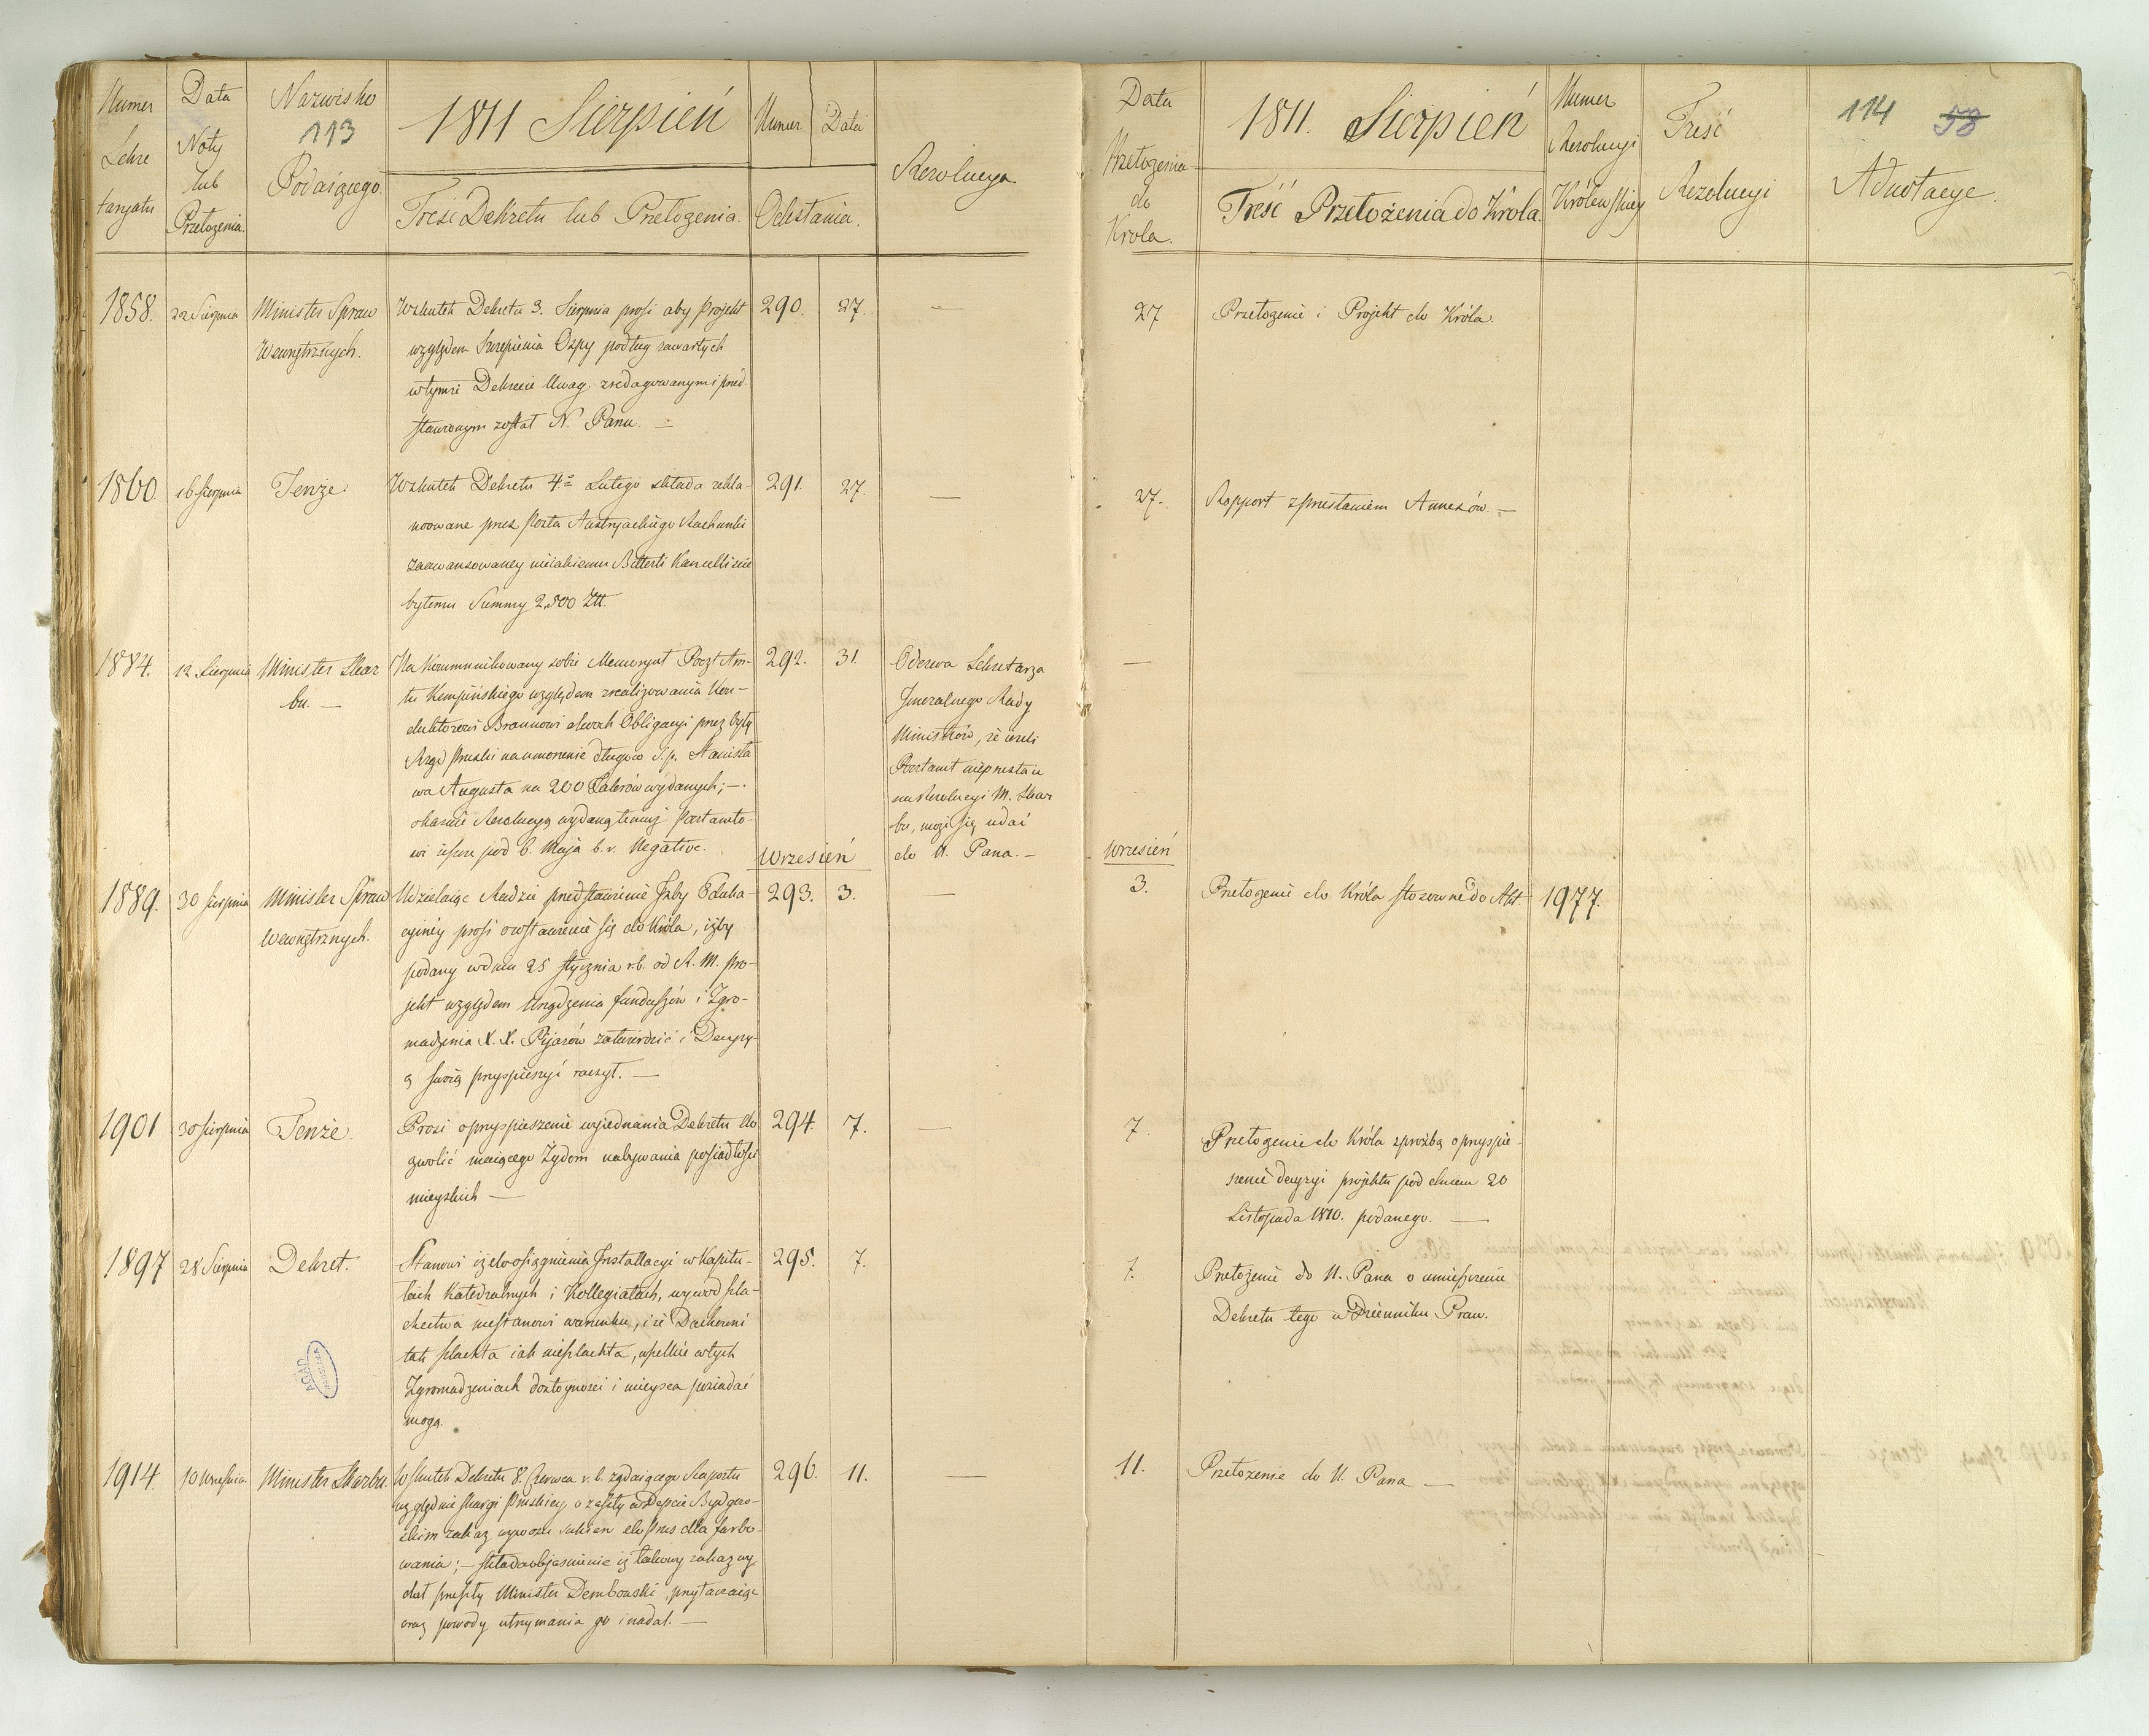 Numer
Sekre
taryatu
Data
Noty
lub
Przełożenia.
Nazwisko
113
Podaiącego.
1811 Sierpień
Treść Dekretu lub Przełożenia.
Numer Data
Odesłania.
Rezolucya
1858. 22 Sierpnia Minister Spraw
Wewnętrznych.
Wskutek Dekretu 3. Sierpnia prosi aby Projekt
względem Szczepienia Ospy podług zawartych
w tymże Dekrecie Uwag, zredagowanym i przed-
stawionym został N. Panu. —
290. 27. —
1860. 16 Sierpnia Tenże.
Wskutek Dekretu 4º Lutego składa rekla-
mowane przez Posła Austryackiego Rachunki
zaawansowaney nieiakiemu Kancelliście
byłemu Summy 2,500 Złł.
291. 27. —
1884. 12 Sierpnia Minister Skar
bu. —
Na Kommunikowany sobie Memoryał Poczt Am-
tu Kempińskiego względem zrealizowania Kon-
duktorowi Braunowi dwóch Obligacyi przez były
Rząd Pruski na umorzenie długów ś. p. Stanisła
wa Augusta na 200 Talerów wydanych; —
okazuie Rezolucyą wydaną temuż Postamto-
wi ieszcze pod 6. Maja b. r. Negative.
292. 31.
Odezwa Sekretarza
Jeneralnego Rady
Ministrów, że ieżeli
Postamt nieprzestaie
na Rezolucyi M. Skar
bu, może się udać
do N. Pana. —
Wrzesień
1889. 30 Sierpnia Minister Spraw
Wewnętrznych.
Udzielaiąc Radzie przedstawienie Izby Eduka-
cyiney prosi o wstawienie się do Króla, iżby
podany w dniu 25 Stycznia r. b. od R. M. pro-
jekt względem Urządzenia funduszów i Zgro-
madzenia X. X. Pijarów zatwierdzić i Decyzy-
ą swoią przyspieszyć raczył. —
293. 3. —
1901 30 Sierpnia Tenże.
Prosi o przyspieszenie wyiednania Dekretu do
zwolić maiącego Żydom nabywania posiadłości
mieyskich —
294. 7. —
1897 28 Sierpnia Dekret.
Stanowi iż do osiągnienia Installacyi w Kapitu-
łach Katedralnych i Kollegiatach, wywód szla-
chectwa niestanowi warunku, i że Duchowni
tak szlachta iak nieszlachta, wszelkie w tych
Zgromadzeniach dostoyności i mieysca posiadać
mogą.
295. 7.
AGAD
1914 10 Września Minister Skarbu.
Wskutek Dekretu 8. Czerwca r. b. żądaiącego Raportu
względnie skargi Pruskiey, o zaszły w Depcie Bydgo-
skim zakaz wywozu sukien do Prus dla farbo-
wania; — składa obiaśnienie iż takowy zakaz wy
dał przeszły Minister Dembowski, przytaczaiąc
oraz powody utrzymania go i nadal. —
296. 11.
Data
Przełożenia
do
Krola.
1811. Sierpień
Treść Przełożenia do Krola.
Numer
Rezolucyi
Królewskiey
Treść
Rezolucyi
114 58
Adnotacye.
27 Przełożenie i Projekt do Króla.
27. Rapport z przesłaniem Annexów. —
—
Wrzesień
3. Przełożenie do Króla stosowne do Akt. 1977.
7 Przełożenie do Króla z prośbą o przyspie-
szenie decyzyi projektu pod dniem 20
Listopada 1810. podanego. —
7. Przełożenie do N. Pana o umieszczenie
Dekretu tego w Dzienniku Praw.
11. Przełożenie do N. Pana —